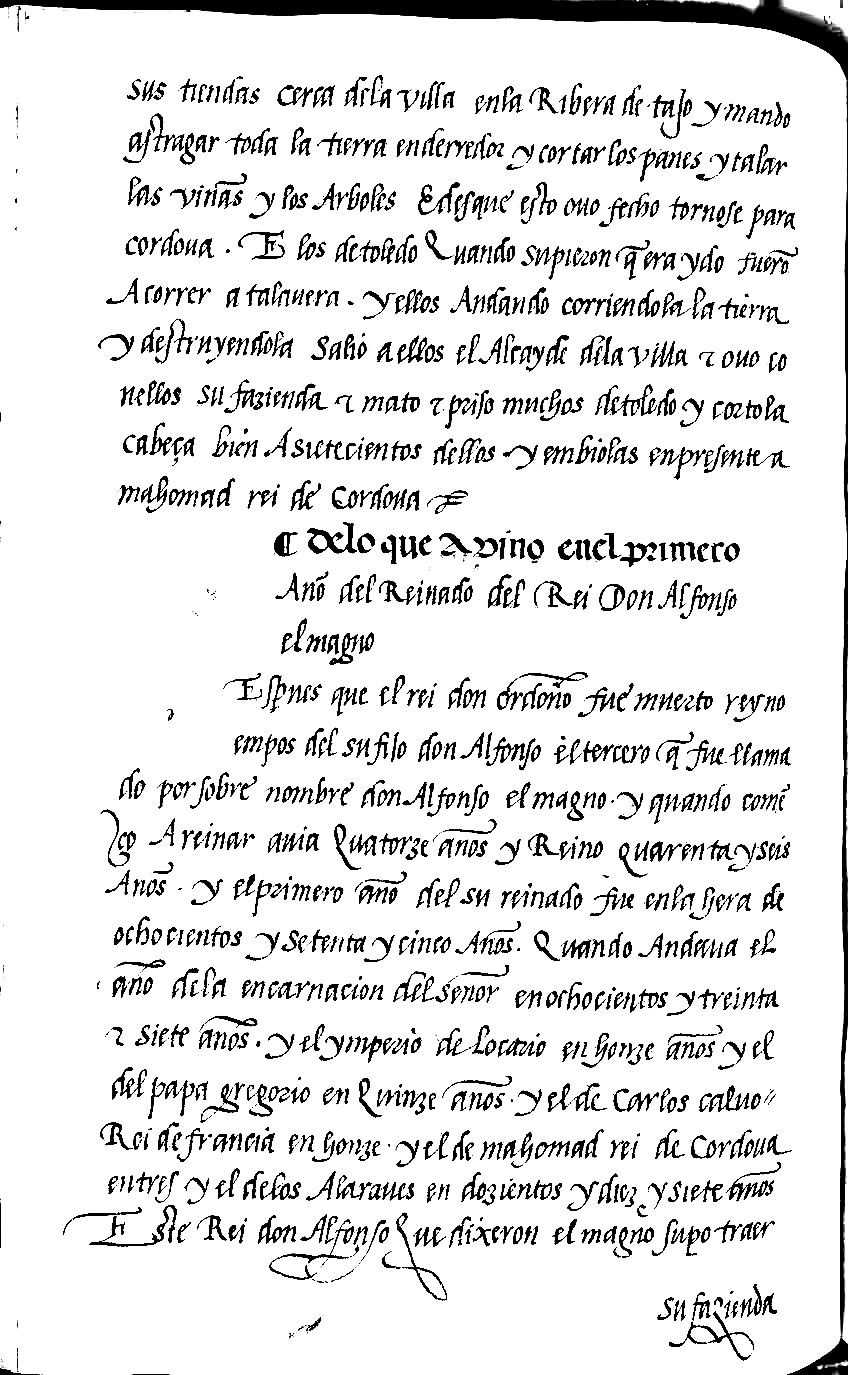 sus tiendas cerca dela villa enla Ribera de tajo y mando
astragar toda la tierra enderredor y cortar los panes y talar
las viñas y los Arboles Edesque esto ouo fecho tornose para
cordoua . E los detoledo Quando supieron q̃ era ydo fuerõ
Acorrer a talauera . y ellos Andando corriendola la tierra
y destruyendola Salio a ellos el Alcayde dela villa τ ouo co
nellos su fazienda τ mato τ priso muchos detoledo y cortola
cabeça bien Asietecientos dellos y embiolas enpresente a
mahomad rei de Cordoua
¶ Delo que Avino enel primero
Año del Reinado del Rei Don Alfonso
el magno
Espues que el rei don ordoño fue muerto reyno
empos del su fijo don Alfonso el tercero q̃ fue llama
do por sobre nombre don Alfonso el magno . y quando comẽ
ço A reinar auia Quatorze años y Reino quarenta y seis
Años . y el primero año del su reinado fue enla hera de
ochocientos y setenta y cinco Años . Quando Andaua el
año dela encarnacion del señor en ochocientos y treinta
τ siete años . y el ymperio de Locario en honze años y el
del papa gregorio en Quinze años . y el de Carlos caluo
Rei de francia en honze . y el de mahomad rei de Cordoua
entres y el delos Alaraues en dozientos y diez y siete años
Este Rei don Alfonso Que dixeron el magno supo traer
su fazienda